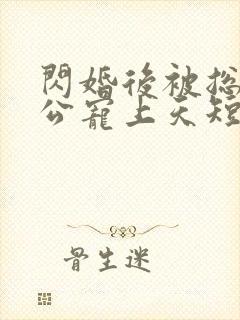 閃婚後被总
公寵上天短
骨生迷